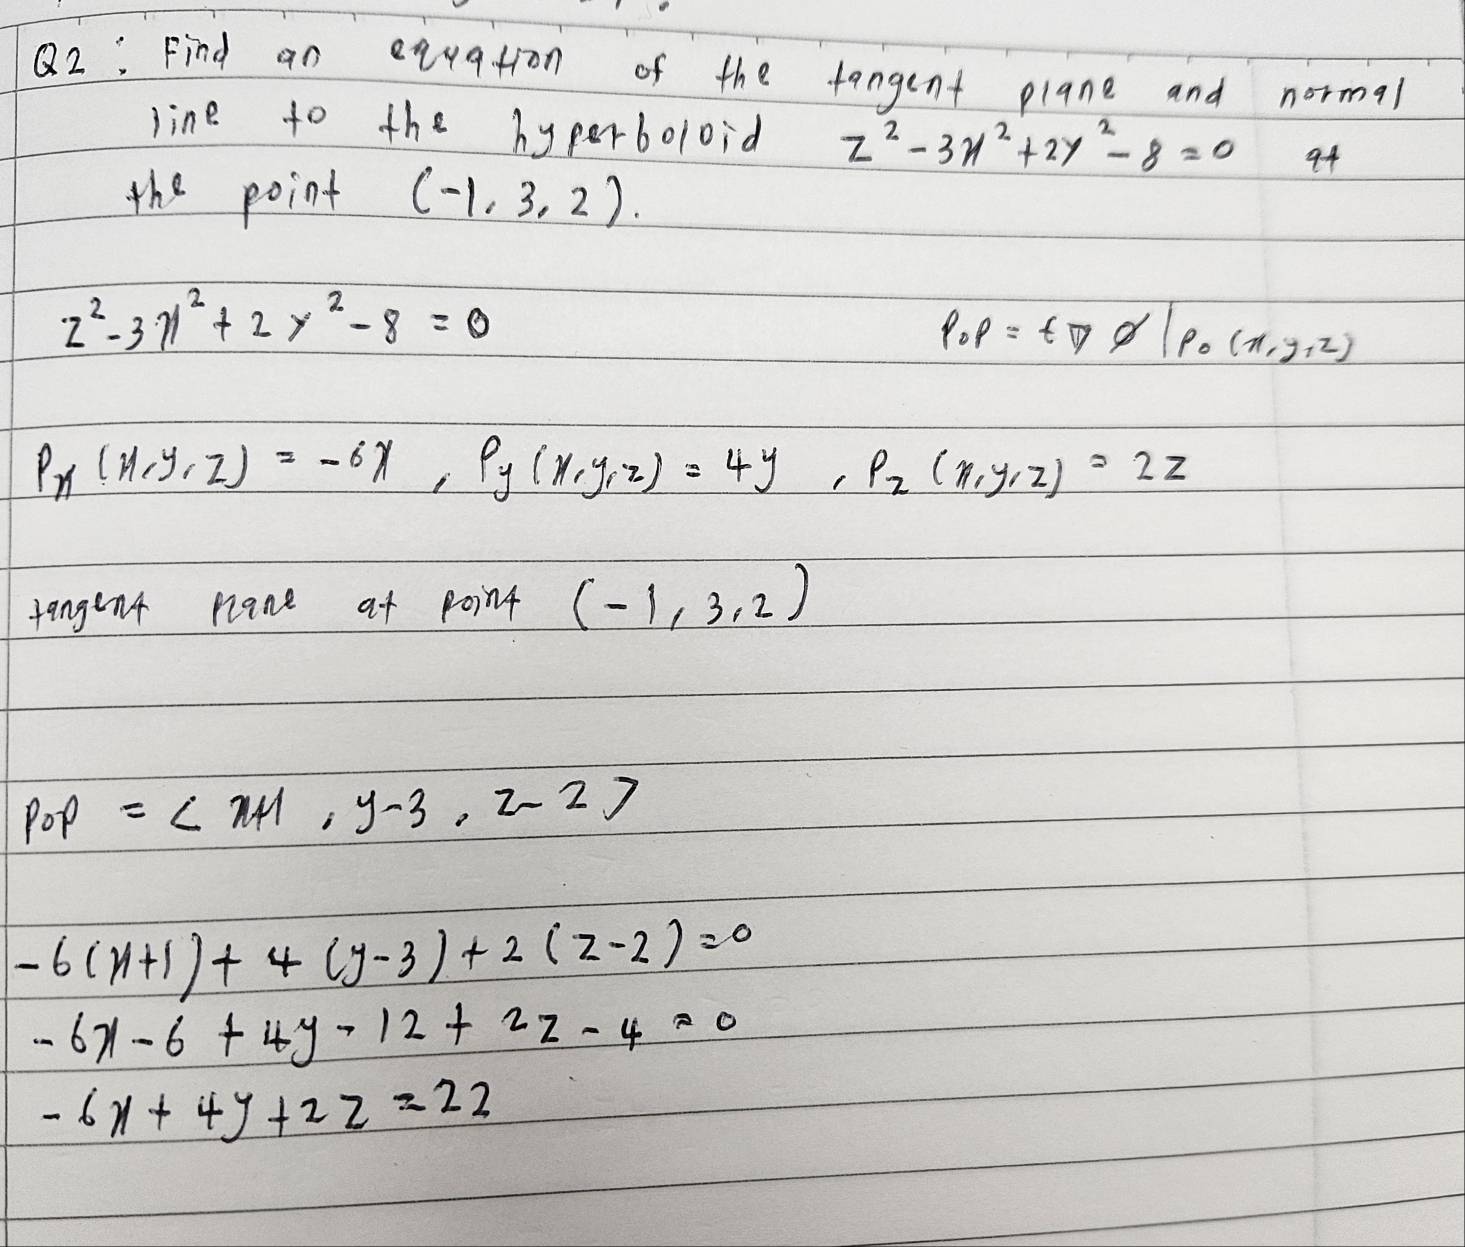 Q2: Find an equation of the tangent plane and normal
line to the hyperboloid z² - 3x² + 2y² - 8 = 0 at
the point (-1, 3, 2).
z² - 3x² + 2y² - 8 = 0
P₀P = t∇Ø|P₀(x,y,z)
Pₓ(x,y,z) = -6x , Py(x,y,z) = 4y , Pz(x,y,z) = 2z
tangent plane at point (-1, 3, 2)
P₀P = <x+1, y-3, z-2>
-6(x+1) + 4(y-3) + 2(z-2) = 0
-6x - 6 + 4y - 12 + 2z - 4 = 0
-6x + 4y + 2z = 22